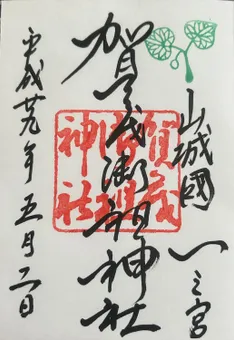 山城國一之宮
賀茂御祖神社
賀茂
御祖
神社
平成廿九年五月二日